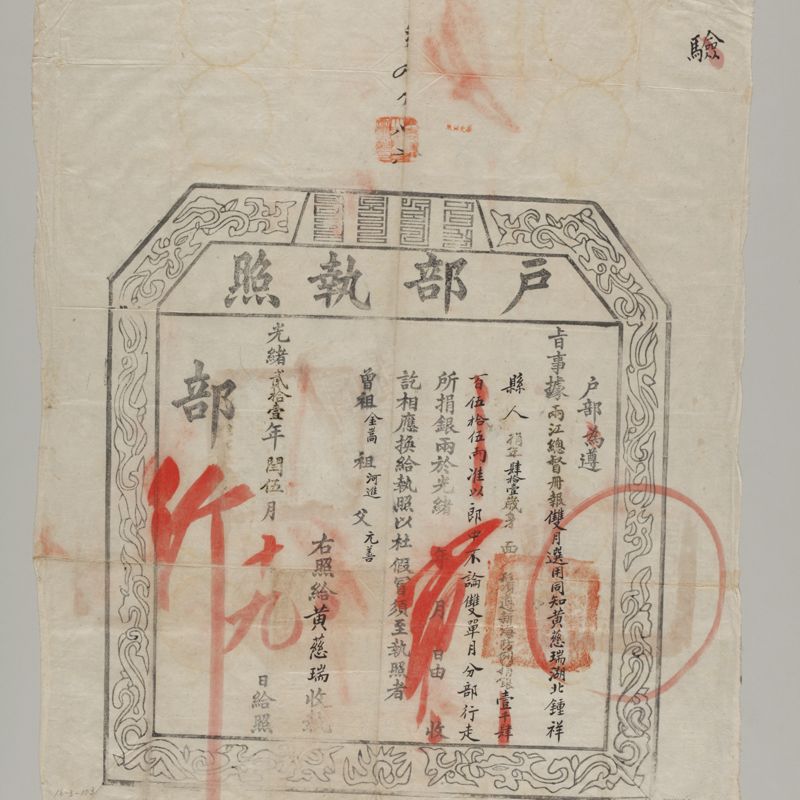 驗
戶部執照
戶部為遵
旨事據兩江總督冊報雙月選用同知黃慈瑞湖北鍾祥
縣人捐年肆拾壹歲身面鬚遵新海防例捐銀壹千肆
百伍拾伍兩准以郎中不論雙單月分部行走
所捐銀兩於光緒年月日由收
訖相應換給執照以杜假冒須至執照者
曾祖金嵩祖河進父元善
右照給黃慈瑞收執
光緒貳拾壹年閏伍月十九日給照
部行
16-3-103